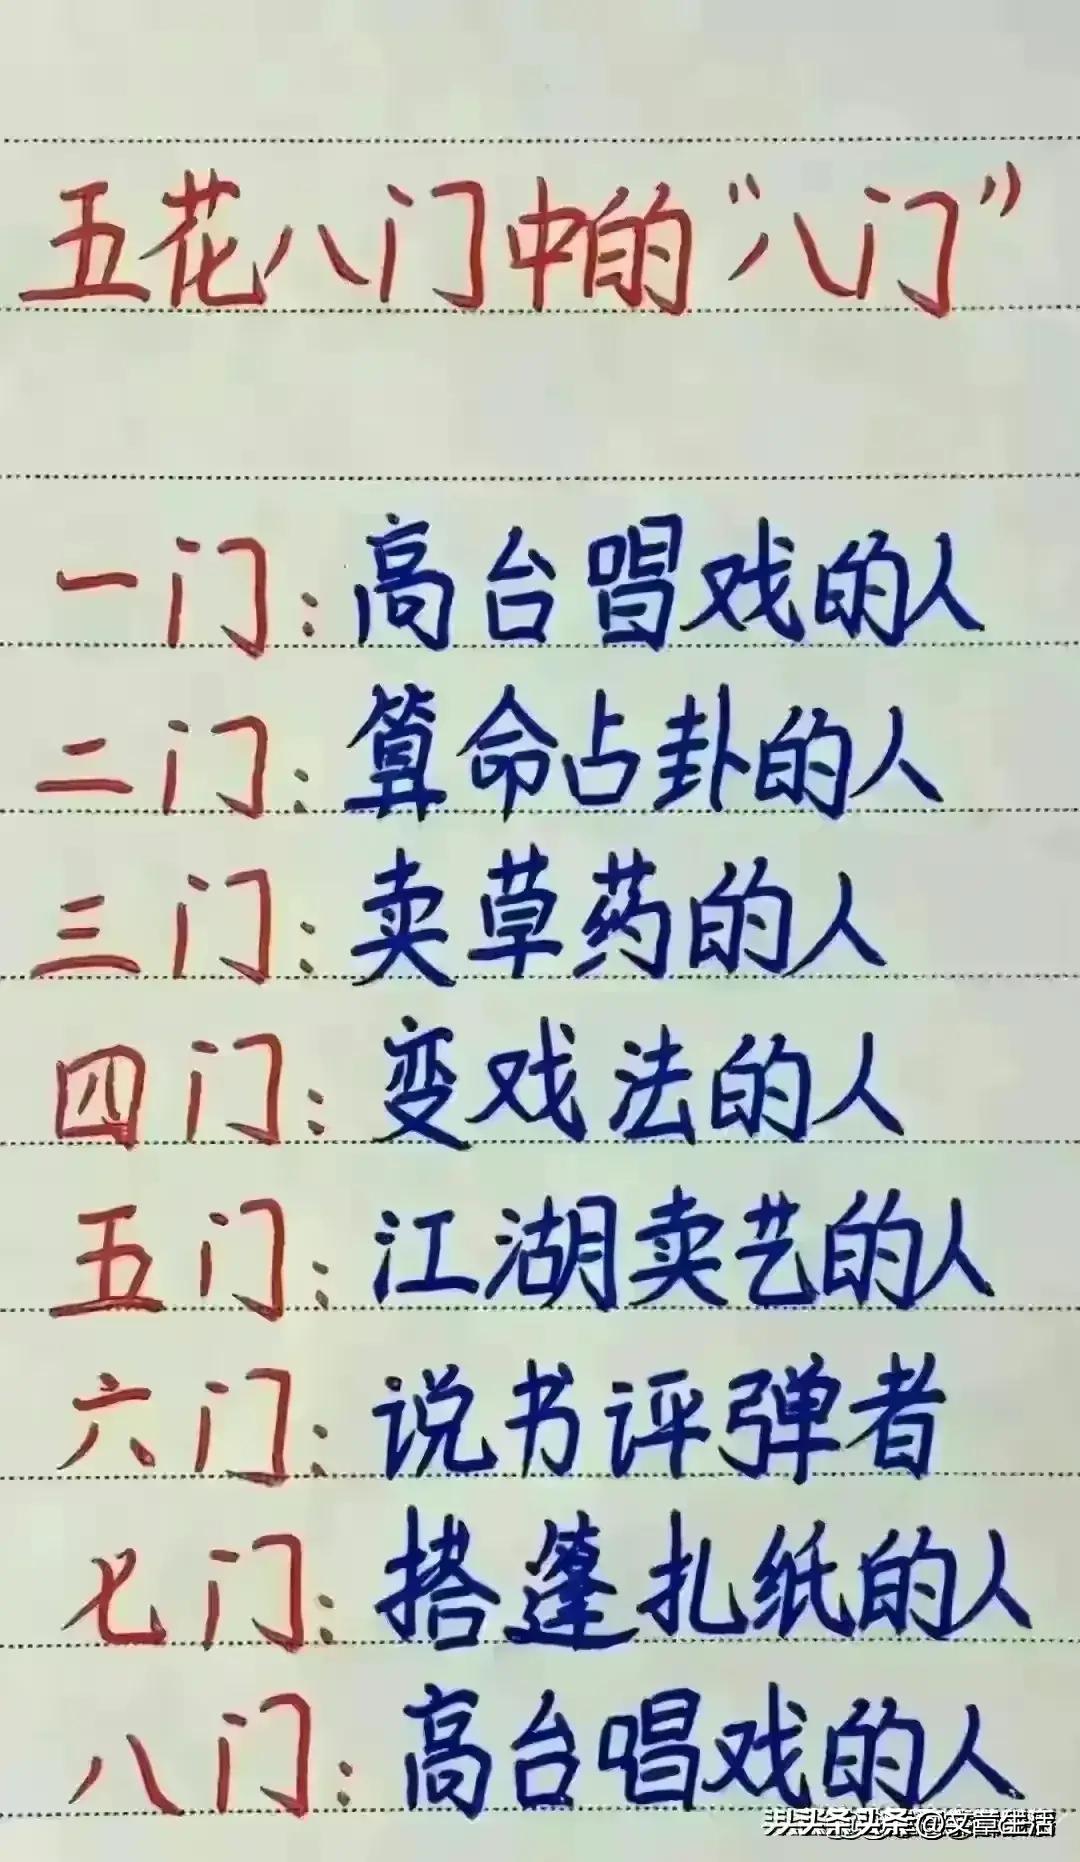 五花八门中的“八门”
一门：高台唱戏的人
二门：算命占卦的人
三门：卖草药的人
四门：变戏法的人
五门：江湖卖艺的人
六门：说书评弹者
七门：搭篷扎纸的人
八门：高台唱戏的人